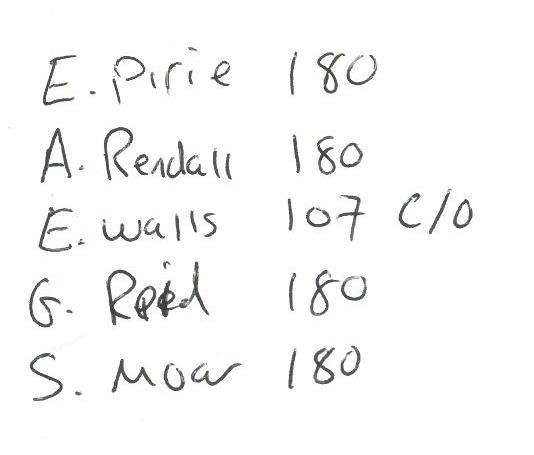 E. Pirie 180
A. Rendall 180
E. Walls 107 C/O
G. Reid 180
S. Moar 180